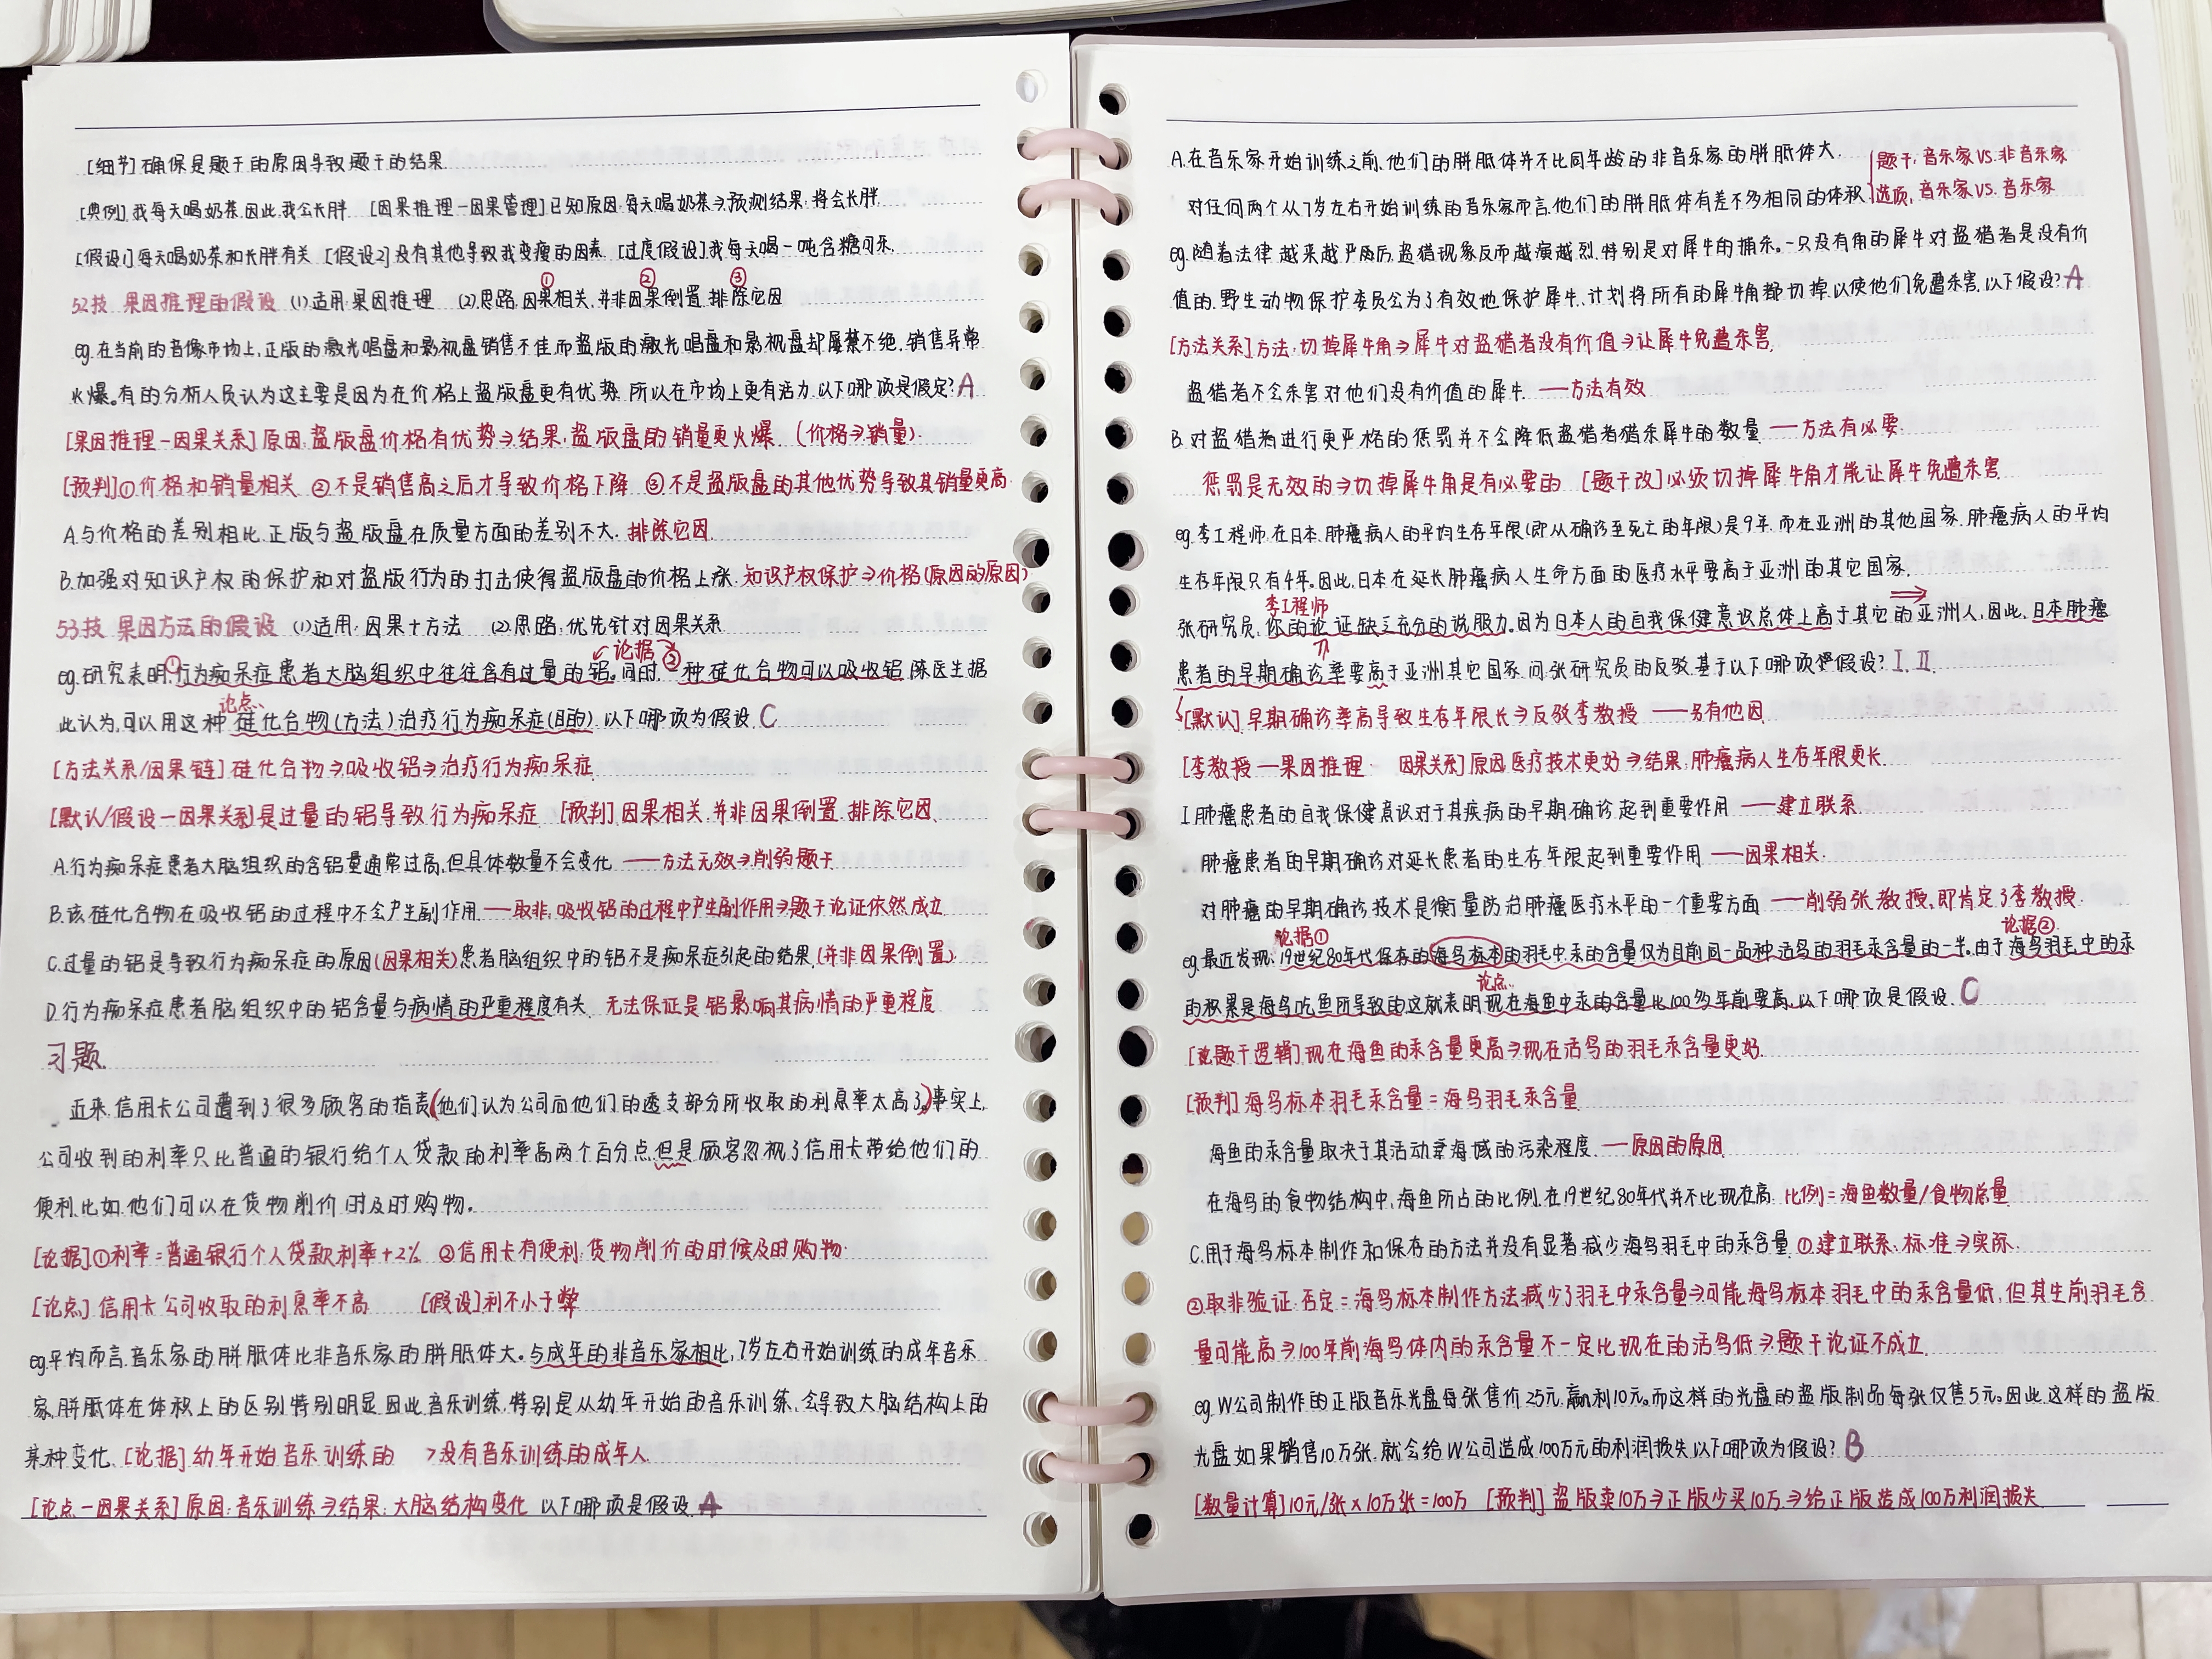 [细节]确保是题干的原因导致题干的结果
[典例].我每天喝奶茶.因此,我会长胖. [因果推理-因果管理]已知原因:每天喝奶茶→预测结果:将会长胖.
[假设1]每天喝奶茶和长胖有关 [假设2]没有其他导致我变瘦的因素 [过度假设]我每天喝一吨含糖可乐.
① ② ③
52技 果因推理的假设 (1)适用:果因推理 (2)思路:因果相关.并非因果倒置.排除它因
eg.在当前的音像市场上,正版的激光唱盘和影视盘销售不佳而盗版的激光唱盘和影视盘却屡禁不绝.销售异常
火爆。有的分析人员认为这主要是因为在价格上盗版盘更有优势.所以在市场上更有活力.以下哪项是假定?A
[果因推理-因果关系]原因:盗版盘价格有优势→结果:盗版盘的销量更火爆.(价格→销量).
[预判]①价格和销量相关 ②不是销售高之后才导致价格下降 ③不是盗版盘的其他优势导致其销量更高.
A.与价格的差别相比.正版与盗版盘在质量方面的差别不大.排除它因.
B.加强对知识产权的保护和对盗版行为的打击使得盗版盘的价格上涨.知识产权保护→价格(原因的原因)
53技 果因方法的假设 (1)适用:因果+方法 (2)思路:优先针对因果关系.
论据 ②
eg.研究表明①行为痴呆症患者大脑组织中往往含有过量的铝.同时,一种硅化合物可以吸收铝.陈医生据
论点
此认为,可以用这种硅化合物(方法)治疗行为痴呆症(目的).以下哪项为假设.C
[方法关系/因果链]硅化合物→吸收铝→治疗行为痴呆症.
[默认/假设-因果关系]是过量的铝导致行为痴呆症 [预判]因果相关.并非因果倒置.排除它因.
A.行为痴呆症患者大脑组织的含铝量通常过高,但具体数量不会变化 ——方法无效→削弱题干.
B.该硅化合物在吸收铝的过程中不会产生副作用.——取非:吸收铝的过程中产生副作用→题干论证依然成立
C.过量的铝是导致行为痴呆症的原因(因果相关)患者脑组织中的铝不是痴呆症引起的结果.(并非因果倒置).
D.行为痴呆症患者脑组织中的铝含量与病情的严重程度有关. 无法保证是铝影响其病情的严重程度
习题.
近来,信用卡公司遭到了很多顾客的指责(他们认为公司向他们的透支部分所收取的利息率太高了)。事实上,
公司收到的利率只比普通的银行给个人贷款的利率高两个百分点.但是顾客忽视了信用卡带给他们的
便利.比如他们可以在货物削价时及时购物。
[论据]①利率=普通银行个人贷款利率+2% ②信用卡有便利:货物削价的时候及时购物.
[论点]信用卡公司收取的利息率不高 [假设]利不小于弊
eg.平均而言.音乐家的胼胝体比非音乐家的胼胝体大。与成年的非音乐家相比,7岁左右开始训练的成年音乐
家,胼胝体在体积上的区别特别明显.因此音乐训练,特别是从幼年开始的音乐训练,会导致大脑结构上的
某种变化.[论据]幼年开始音乐训练的 >没有音乐训练的成年人.
[论点-因果关系]原因:音乐训练→结果:大脑结构变化 以下哪项是假设.A
A.在音乐家开始训练之前,他们的胼胝体并不比同年龄的非音乐家的胼胝体大.
题干:音乐家VS.非音乐家
对任何两个从7岁左右开始训练的音乐家而言.他们的胼胝体有差不多相同的体积.
选项:音乐家VS.音乐家
eg.随着法律越来越严厉后,盗猎现象反而越演越烈.特别是对犀牛的捕杀.一只没有角的犀牛对盗猎者是没有价
值的.野生动物保护委员会为了有效地保护犀牛.计划将所有的犀牛角都切掉.以使他们免遭杀害.以下假设?A
[方法关系]方法:切掉犀牛角→犀牛对盗猎者没有价值→让犀牛免遭杀害.
盗猎者不会杀害对他们没有价值的犀牛.——方法有效
B.对盗猎者进行更严格的惩罚并不会降低盗猎者猎杀犀牛的数量 ——方法有必要.
惩罚是无效的→切掉犀牛角是有必要的 [题干改]必须切掉犀牛角才能让犀牛免遭杀害.
eg.李工程师:在日本,肺癌病人的平均生存年限(即从确诊至死亡的年限)是9年.而在亚洲的其他国家.肺癌病人的平均
生存年限只有4年.因此,日本在延长肺癌病人生命方面的医疗水平要高于亚洲的其它国家.
李工程师
张研究员:你的论证缺乏充分的说服力.因为日本人的自我保健意识总体上高于其它的亚洲人,因此,日本肺癌
患者的早期确诊率要高于亚洲其它国家.问张研究员的反驳.基于以下哪项假设?I.II.
[默认]早期确诊率高导致生存年限长→反驳李教授 ——另有他因
[李教授-果因推理 因果关系]原因:医疗技术更好→结果:肺癌病人生存年限更长.
I.肺癌患者的自我保健意识对于其疾病的早期确诊起到重要作用 ——建立联系.
肺癌患者的早期确诊对延长患者的生存年限起到重要作用 ——因果相关.
对肺癌的早期确诊技术是衡量防治肺癌医疗水平的一个重要方面 ——削弱张教授,即肯定了李教授.
论据① 论据②
eg.最近发现:19世纪80年代保存的海鸟标本的羽毛中汞的含量仅为目前同一品种活鸟的羽毛汞含量的一半.由于海鸟羽毛中的汞
论点
的积累是海鸟吃鱼所导致的.这就表明现在海鱼中汞的含量比100多年前要高.以下哪项是假设.C
[题干逻辑].现在海鱼的汞含量更高→现在活鸟的羽毛汞含量更好.
[预判]海鸟标本羽毛汞含量=海鸟羽毛汞含量.
海鱼的汞含量取决于其活动海域的污染程度.——原因的原因.
在海鸟的食物结构中,海鱼所占的比例.在19世纪80年代并不比现在高.比例=海鱼数量/食物总量
C.用于海鸟标本制作和保存的方法并没有显著减少海鸟羽毛中的汞含量.①建立联系.标准→实际.
②取非验证:否定=海鸟标本制作方法减少了羽毛中汞含量→可能海鸟标本羽毛中的汞含量低,但其生前羽毛含
量可能高→100年前海鸟体内的汞含量不一定比现在的活鸟低→题干论证不成立.
eg.W公司制作的正版音乐光盘每张售价25元,赢利10元。而这样的光盘的盗版制品每张仅售5元。因此.这样的盗版
光盘如果销售10万张.就会给W公司造成100万元的利润损失.以下哪项为假设?B
[数量计算]10元/张×10万张=100万 [预判]盗版卖10万→正版少买10万→给正版造成100万利润损失.